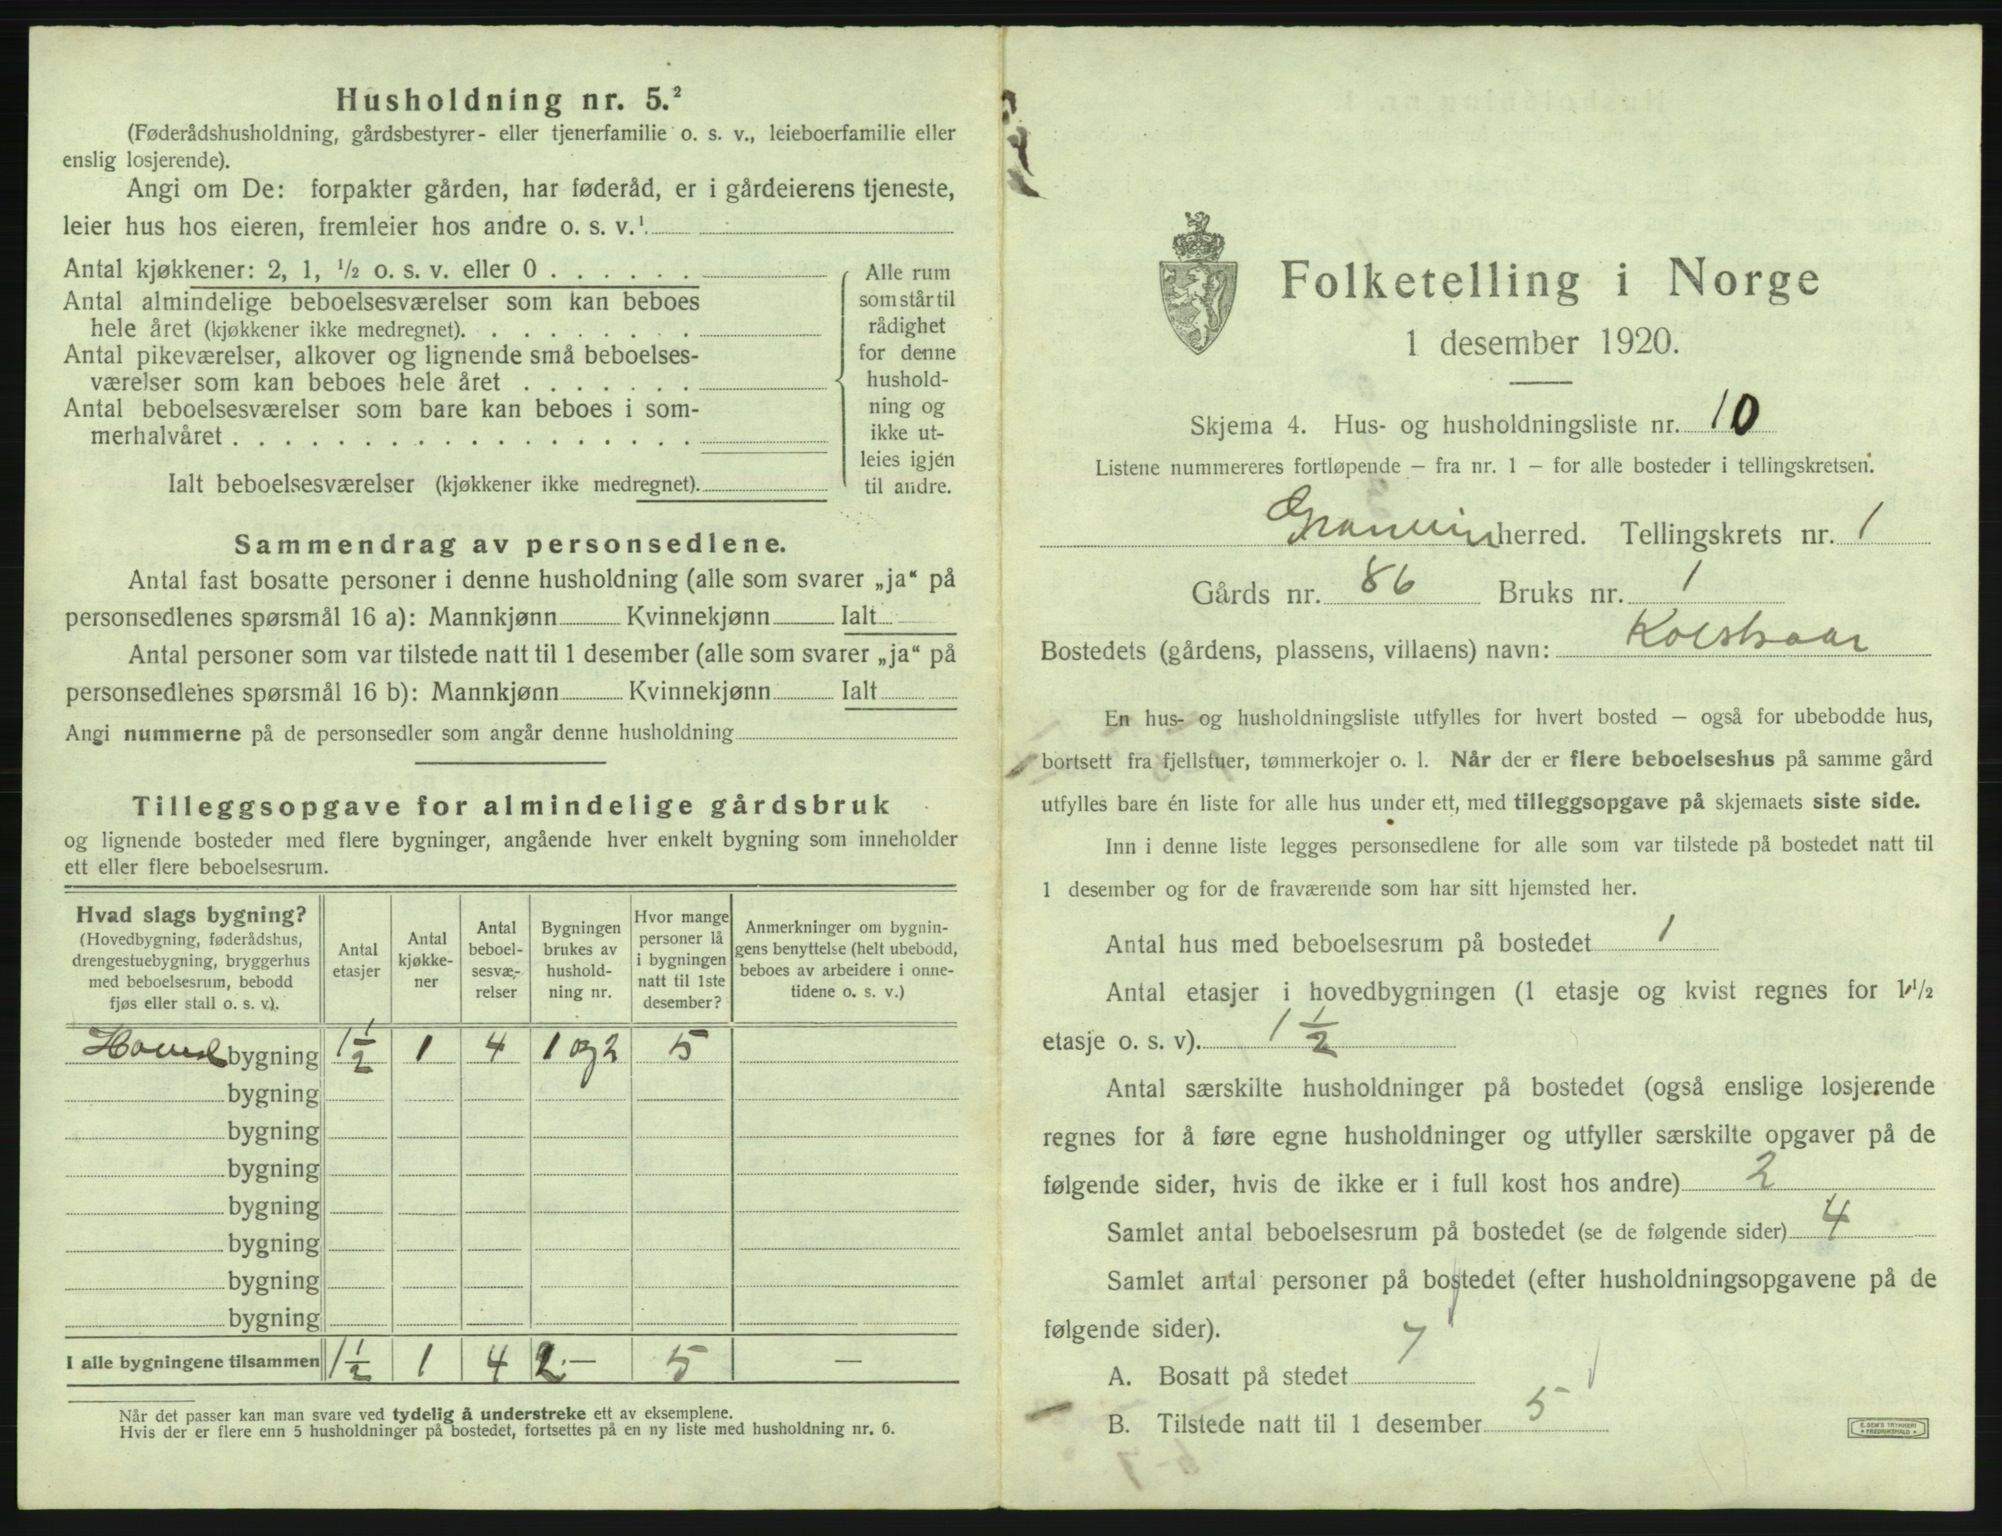 Husholdning nr. 5.²
(Føderådshusholdning, gårdsbestyrer- eller tjenerfamilie o. s. v., leieboerfamilie eller
enslig losjerende).
Angi om De: forpakter gården, har føderåd, er i gårdeierens tjeneste,
leier hus hos eieren, fremleier hos andre o. s. v.¹
Antal kjøkkener: 2, 1, ½ o. s. v. eller 0 . . . . . .
Antal almindelige beboelsesværelser som kan beboes
hele året (kjøkkener ikke medregnet). . . . . . . . .
Antal pikeværelser, alkover og lignende små beboelses-
værelser som kan beboes hele året . . . . . . .
Antal beboelsesværelser som bare kan beboes i som-
merhalvåret . . . . . . . . . . . . . . . . . .
Ialt beboelsesværelser (kjøkkener ikke medregnet).
Alle rum
som står til
rådighet
for denne
hushold-
ning og
ikke ut-
leies igjen
til andre.
Sammendrag av personsedlene.
Antal fast bosatte personer i denne husholdning (alle som svarer „ja“ på
personsedlenes spørsmål 16 a): Mannkjønn Kvinnekjønn Ialt
Antal personer som var tilstede natt til 1 desember (alle som svarer „ja“ på
personsedlenes spørsmål 16 b): Mannkjønn Kvinnekjønn Ialt
Angi nummerne på de personsedler som angår denne husholdning
Tilleggsopgave for almindelige gårdsbruk
og lignende bosteder med flere bygninger, angående hver enkelt bygning som inneholder
ett eller flere beboelsesrum.
Hvad slags bygning?
(Hovedbygning, føderådshus,
drengestuebygning, bryggerhus
med beboelsesrum, bebodd
fjøs eller stall o. s. v.).
Antal
etasjer
Antal
kjøkke-
ner
Antal
beboel-
sesvæ-
relser
Bygningen
brukes av
hushold-
ning nr.
Hvor mange
personer lå
i bygningen
natt til 1ste
desember?
Anmerkninger om bygnin-
gens benyttelse (helt ubebodd,
beboes av arbeidere i onne-
tidene o. s. v.)
Hovedbygning 1½ 1 4 1 og 2 5
bygning
bygning
bygning
bygning
bygning
bygning
bygning
I alle bygningene tilsammen 1½ 1 4 2.— 5 —
Når det passer kan man svare ved tydelig å understreke ett av eksemplene.
Hvis der er flere enn 5 husholdninger på bostedet, fortsettes på en ny liste med husholdning nr. 6.
Folketelling i Norge
1 desember 1920.
Skjema 4. Hus- og husholdningsliste nr. 10
Listene nummereres fortløpende – fra nr. 1 – for alle bosteder i tellingskretsen.
Granvin herred. Tellingskrets nr. 1
Gårds nr. 86 Bruks nr. 1
Bostedets (gårdens, plassens, villaens) navn:
En hus- og husholdningsliste utfylles for hvert bosted – også for ubebodde hus,
bortsett fra fjellstuer, tømmerkojer o. l. Når der er flere beboelseshus på samme gård
utfylles bare én liste for alle hus under ett, med tilleggsopgave på skjemaets siste side.
Inn i denne liste legges personsedlene for alle som var tilstede på bostedet natt til
1 desember og for de fraværende som har sitt hjemsted her.
Antal hus med beboelsesrum på bostedet 1
Antal etasjer i hovedbygningen (1 etasje og kvist regnes for 1½
etasje o. s. v). 1½
Antal særskilte husholdninger på bostedet (også enslige losjerende
regnes for å føre egne husholdninger og utfyller særskilte opgaver på de
følgende sider, hvis de ikke er i full kost hos andre) 2
Samlet antal beboelsesrum på bostedet (se de følgende sider) 4
Samlet antal personer på bostedet (efter husholdningsopgavene på de
følgende sider).
A. Bosatt på stedet 7
B. Tilstede natt til 1 desember 5
E. SEM'S TRYKKERI
• FREDRIKSHALD •